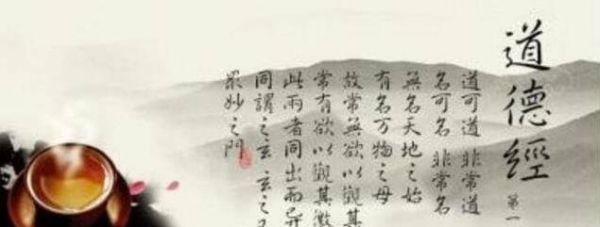 道德經 第一
道可道 非常道
名可名 非常名
無名天地之始
有名万物之母
故常無欲以觀其
常有欲以觀其徼
此兩者同出而异
同謂之玄 玄之
眾妙之門